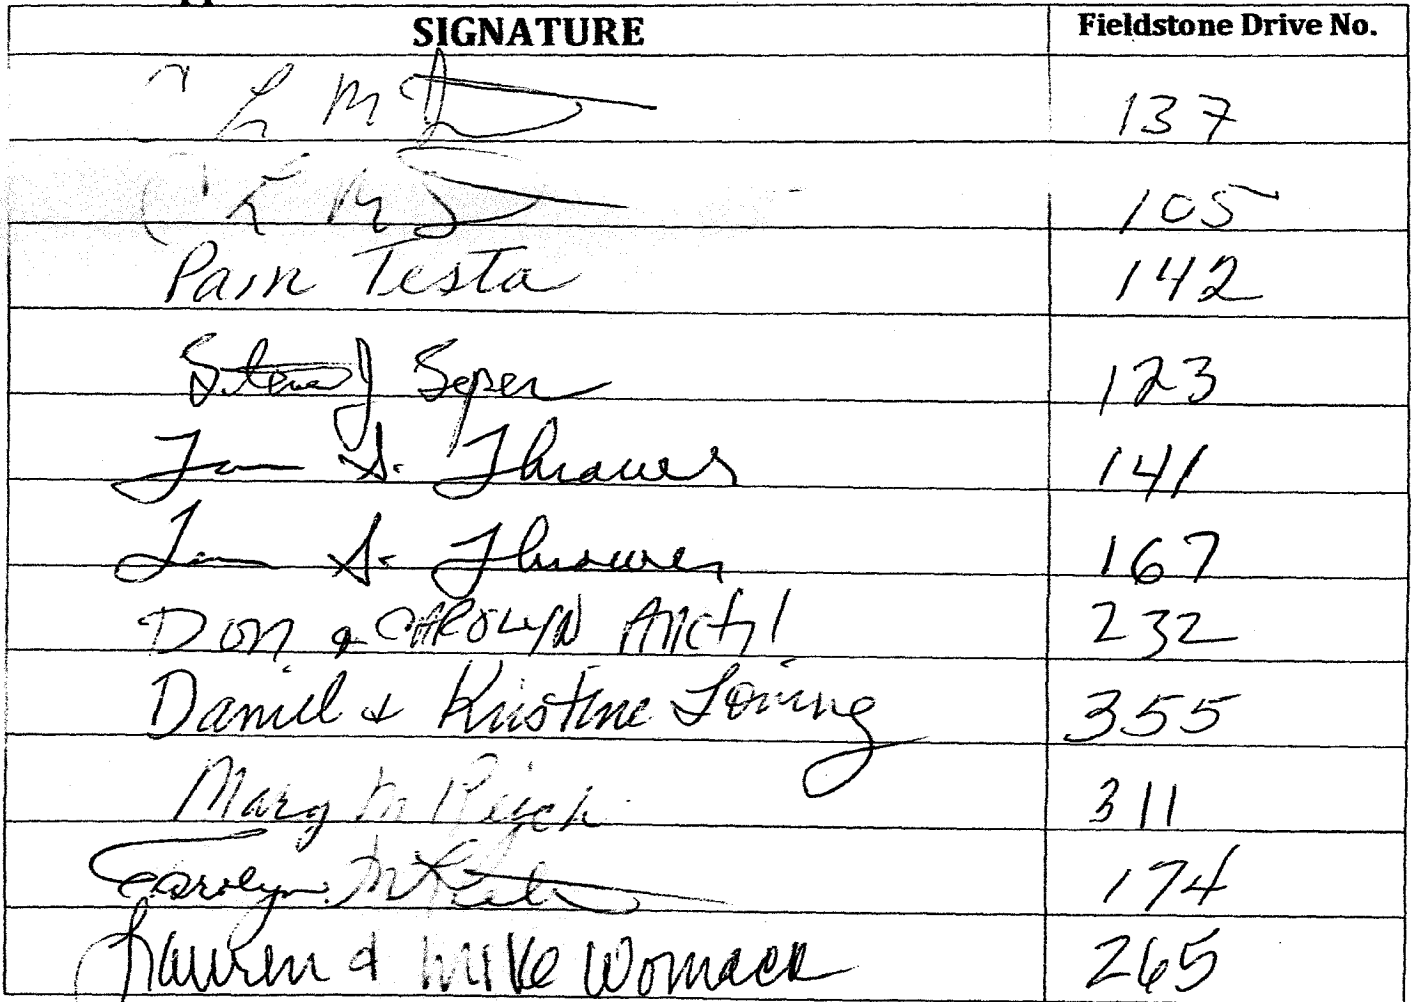 SIGNATURE Fieldstone Drive No.
137
105
Pam Testa 142
Steven J Seper 123
S. Thrower 141
S. Thrower 167
DON & CAROLYN 232
Daniel & Kristine Loving 355
Mary M 311
Carolyn M 174
Lauren & Mike Womack 265